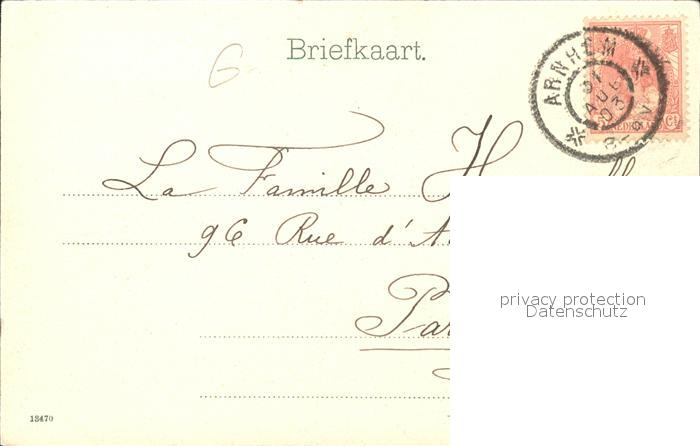 Briefkaart.
G
ARNHEM
31
AUG
03
8-9V
NEDERLAND
La Famille H
96 Rue d'A
Par
privacy protection
Datenschutz
13470